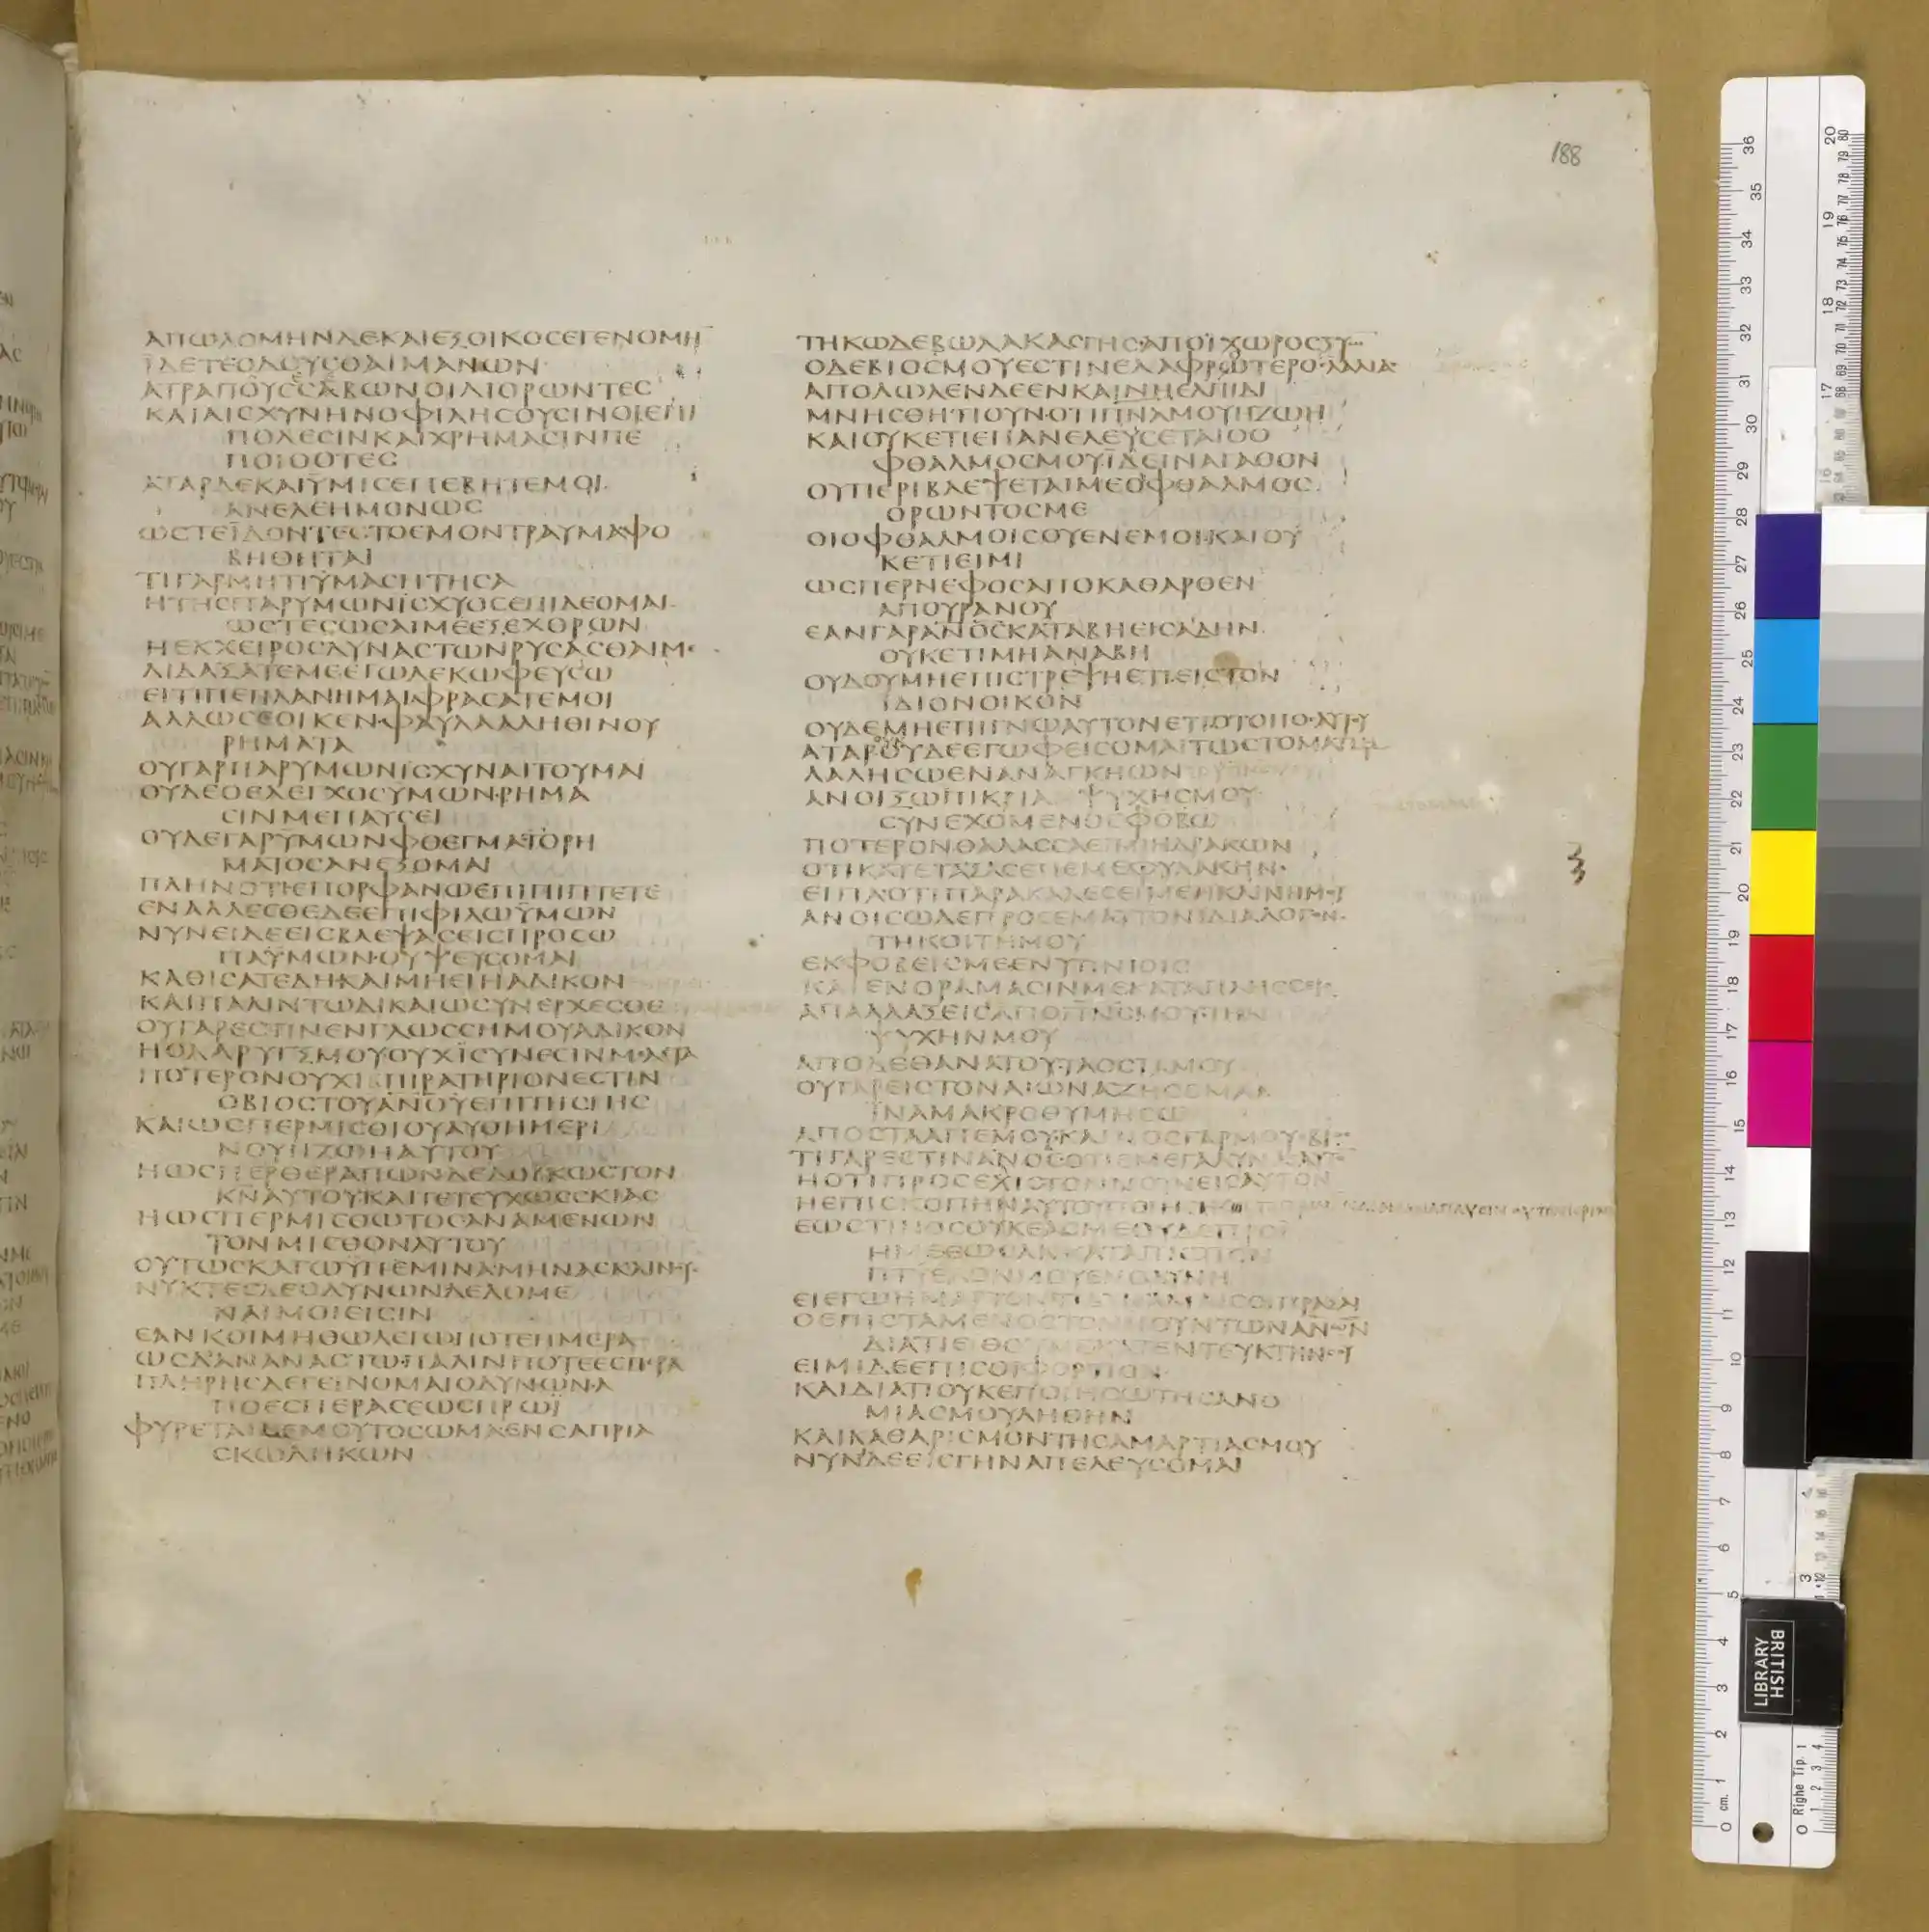 188
ΑΠΩΛΟΜΗΝΔΕΚΑΙΕΞΟΙΚΟΣΕΓΕΝΟΜΗ
ΪΔΕΤΕΟΔΟΥΣΘΑΙΜΑΝΩΝ
ΑΤΡΑΠΟΥΣΣΑΒΩΝΟΙΔΙΟΡΩΝΤΕΣ
ΚΑΙΑΙΣΧΥΝΗΝΟΦΙΛΗΣΟΥΣΙΝΟΙΕΠΙ
ΠΟΛΕΣΙΝΚΑΙΧΡΗΜΑΣΙΝΠΕ
ΠΟΙΘΟΤΕΣ
ΑΤΑΡΔΕΚΑΙΫΜΙΣΕΠΕΒΗΤΕΜΟΙ
ΑΝΕΛΕΗΜΟΝΩΣ
ΩΣΤΕΪΔΟΝΤΕΣΤΟΕΜΟΝΤΡΑΥΜΑΦΟ
ΒΗΘΗΤΑΙ
ΤΙΓΑΡΜΗΤΙΫΜΑΣΗΤΗΣΑ
ΗΤΗΣΠΑΡΥΜΩΝΪΣΧΥΟΣΕΠΙΔΕΟΜΑΙ
ΩΣΤΕΣΩΣΑΙΜΕΕΞΕΧΘΡΩΝ
ΗΕΚΧΕΙΡΟΣΔΥΝΑΣΤΩΝΡΥΣΑΣΘΑΙΜΕ
ΔΙΔΑΞΑΤΕΜΕΕΓΩΔΕΚΩΦΕΥΣΩ
ΕΙΤΙΠΕΠΛΑΝΗΜΑΙΦΡΑΣΑΤΕΜΟΙ
ΑΛΛΩΣΕΟΙΚΕΝΦΑΥΛΑΑΛΗΘΙΝΟΥ
ΡΗΜΑΤΑ
ΟΥΓΑΡΠΑΡΥΜΩΝΙΣΧΥΝΑΙΤΟΥΜΑΙ
ΟΥΔΕΟΕΛΕΓΧΟΣΥΜΩΝΡΗΜΑ
ΣΙΝΜΕΠΑΥΣΕΙ
ΟΥΔΕΓΑΡΫΜΩΝΦΘΕΓΜΑΤΟΡΗ
ΜΑΤΟΣΑΝΕΞΟΜΑΙ
ΠΛΗΝΟΤΙΕΠΟΡΦΑΝΩΕΠΙΠΙΠΤΕΤΕ
ΕΝΑΛΛΕΣΘΕΔΕΕΠΙΦΙΛΩΫΜΩΝ
ΝΥΝΕΙΔΕΕΙΣΒΛΕΨΑΣΕΙΣΠΡΟΣΩ
ΠΑΫΜΩΝΟΥΨΕΥΣΟΜΑΙ
ΚΑΘΙΣΑΤΕΔΗΚΑΙΜΗΕΙΗΑΔΙΚΟΝ
ΚΑΙΠΑΛΙΝΤΩΔΙΚΑΙΩΣΥΝΕΡΧΕΣΘΕ
ΟΥΓΑΡΕΣΤΙΝΕΝΓΛΩΣΣΗΜΟΥΑΔΙΚΟΝ
ΗΟΛΑΡΥΓΞΜΟΥΟΥΧΪΣΥΝΕΣΙΝΜΕΛΕΤΑ
ΠΟΤΕΡΟΝΟΥΧΙΠΙΡΑΤΗΡΙΟΝΕΣΤΙΝ
ΟΒΙΟΣΤΟΥΑΝΟΥΕΠΙΤΗΣΓΗΣ
ΚΑΙΩΣΠΕΡΜΙΣΘΙΟΥΑΥΘΗΜΕΡΙ
ΝΟΥΗΖΩΗΑΥΤΟΥ
ΗΩΣΠΕΡΘΕΡΑΠΩΝΔΕΔΟΙΚΩΣΤΟΝ
ΚΝΑΥΤΟΥΚΑΙΤΕΤΕΥΧΩΣΣΚΙΑΣ
ΗΩΣΠΕΡΜΙΣΘΩΤΟΣΑΝΑΜΕΝΩΝ
ΤΟΝΜΙΣΘΟΝΑΥΤΟΥ
ΟΥΤΩΣΚΑΓΩΫΠΕΜΙΝΑΜΗΝΑΣΚΑΙΝΟΥΣ
ΝΥΚΤΕΣΔΕΟΔΥΝΩΝΔΕΔΟΜΕ
ΝΑΙΜΟΙΕΙΣΙΝ
ΕΑΝΚΟΙΜΗΘΩΛΕΓΩΠΟΤΕΗΜΕΡΑ
ΩΣΔΑΝΑΝΑΣΤΩΠΑΛΙΝΠΟΤΕΕΣΠΕΡΑ
ΠΛΗΡΗΣΔΕΓΕΙΝΟΜΑΙΟΔΥΝΩΝΑ
ΠΟΕΣΠΕΡΑΣΕΩΣΠΡΩΪ
ΦΥΡΕΤΑΙΔΕΜΟΥΤΟΣΩΜΑΕΝΣΑΠΡΙΑ
ΣΚΩΛΗΚΩΝ
ΤΗΚΩΔΕΒΩΛΑΚΑΣΓΗΣΑΠΟΪΧΩΡΟΣΞΥ
ΟΔΕΒΙΟΣΜΟΥΕΣΤΙΝΕΛΑΦΡΩΤΕΡΟΣΛΑΛΙΑΣ
ΑΠΟΛΩΛΕΝΔΕΕΝΚΑΙΝΗΕΛΠΙΔΙ
ΜΝΗΣΘΗΤΙΟΥΝΟΤΙΠΝΑΜΟΥΗΖΩΗ
ΚΑΙΟΥΚΕΤΙΕΠΑΝΕΛΕΥΣΕΤΑΙΟΟ
ΦΘΑΛΜΟΣΜΟΥΪΔΕΙΝΑΓΑΘΟΝ
ΟΥΠΕΡΙΒΛΕΨΕΤΑΙΜΕΟΦΘΑΛΜΟΣ
ΟΡΩΝΤΟΣΜΕ
ΟΙΟΦΘΑΛΜΟΙΣΟΥΕΝΕΜΟΙΚΑΙΟΥ
ΚΕΤΙΕΙΜΙ
ΩΣΠΕΡΝΕΦΟΣΑΠΟΚΑΘΑΡΘΕΝ
ΑΠΟΥΡΑΝΟΥ
ΕΑΝΓΑΡΑΝΟΣΚΑΤΑΒΗΕΙΣΑΔΗΝ
ΟΥΚΕΤΙΜΗΑΝΑΒΗ
ΟΥΔΟΥΜΗΕΠΙΣΤΡΕΨΗΕΤΙΕΙΣΤΟΝ
ΪΔΙΟΝΟΙΚΟΝ
ΟΥΔΕΜΗΕΠΙΓΝΩΑΥΤΟΝΕΤΙΟΤΟΠΟΣΑΥΤΟΥ
ΑΤΑΡΟΥΔΕΕΓΩΦΕΙΣΟΜΑΙΤΩΣΤΟΜΑΤΙΜΟΥ
ΛΑΛΗΣΩΕΝΑΝΑΓΚΗΩΝ
ΑΝΟΙΞΩΠΙΚΡΙΑΨΥΧΗΣΜΟΥ
ΣΥΝΕΧΟΜΕΝΟΣΦΟΒΩ
ΠΟΤΕΡΟΝΘΑΛΑΣΣΑΕΙΜΙΗΔΡΑΚΩΝ
ΟΤΙΚΑΤΕΤΑΞΑΣΕΠΕΜΕΦΥΛΑΚΗΝ
ΕΙΠΑΟΤΙΠΑΡΑΚΑΛΕΣΕΙΜΕΗΚΛΙΝΗΜΟΥ
ΑΝΟΙΣΩΔΕΠΡΟΣΕΜΑΥΤΟΝΪΔΙΑΛΟΓΟΝ
ΤΗΚΟΙΤΗΜΟΥ
ΕΚΦΟΒΕΙΣΜΕΕΝΥΠΝΙΟΙΣ
ΚΑΙΕΝΟΡΑΜΑΣΙΝΜΕΚΑΤΑΠΛΗΣΣΕΙΣ
ΑΠΑΛΛΑΞΕΙΣΑΠΟΠΝΣΜΟΥΤΗΝ
ΨΥΧΗΝΜΟΥ
ΑΠΟΔΕΘΑΝΑΤΟΥΤΑΟΣΤΑΜΟΥ
ΟΥΓΑΡΕΙΣΤΟΝΑΙΩΝΑΖΗΣΟΜΑΙ
ΪΝΑΜΑΚΡΟΘΥΜΗΣΩ
ΑΠΟΣΤΑΑΠΕΜΟΥΚΑΙΝΟΣΓΑΡΜΟΥΟΒΙΟΣ
ΤΙΓΑΡΕΣΤΙΝΑΝΟΣΟΤΙΕΜΕΓΑΛΥΝΑΣΑΥΤΟΝ
ΗΟΤΙΠΡΟΣΕΧΙΣΤΟΝΝΟΥΝΕΙΣΑΥΤΟΝ
ΗΕΠΙΣΚΟΠΗΝΑΥΤΟΥΠΟΙΗΣΗ
ΕΩΣΤΙΝΟΣΟΥΚΕΑΣΜΕΟΥΔΕΠΡΟΪ
ΗΜΕΕΩΣΑΝΚΑΤΑΠΙΩΤΟΝ
ΠΤΥΕΛΟΝΜΟΥΕΝΟΔΥΝΗ
ΕΙΕΓΩΗΜΑΡΤΟΝΤΙΔΥΝΑΜΑΙΣΟΙΠΡΑΞΑΙ
ΟΕΠΙΣΤΑΜΕΝΟΣΤΟΝΝΟΥΝΤΩΝΑΝΩΝ
ΔΙΑΤΙΕΘΟΥΜΕΚΑΤΕΝΤΕΥΚΤΗΝΣΟΥ
ΕΙΜΙΔΕΕΠΙΣΟΙΦΟΡΤΙΟΝ
ΚΑΙΔΙΑΤΙΟΥΚΕΠΟΙΗΣΩΤΗΣΑΝΟ
ΜΙΑΣΜΟΥΛΗΘΗΝ
ΚΑΙΚΑΘΑΡΙΣΜΟΝΤΗΣΑΜΑΡΤΙΑΣΜΟΥ
ΝΥΝΔΕΕΙΣΓΗΝΑΠΕΛΕΥΣΟΜΑΙ
BRITISH
LIBRARY